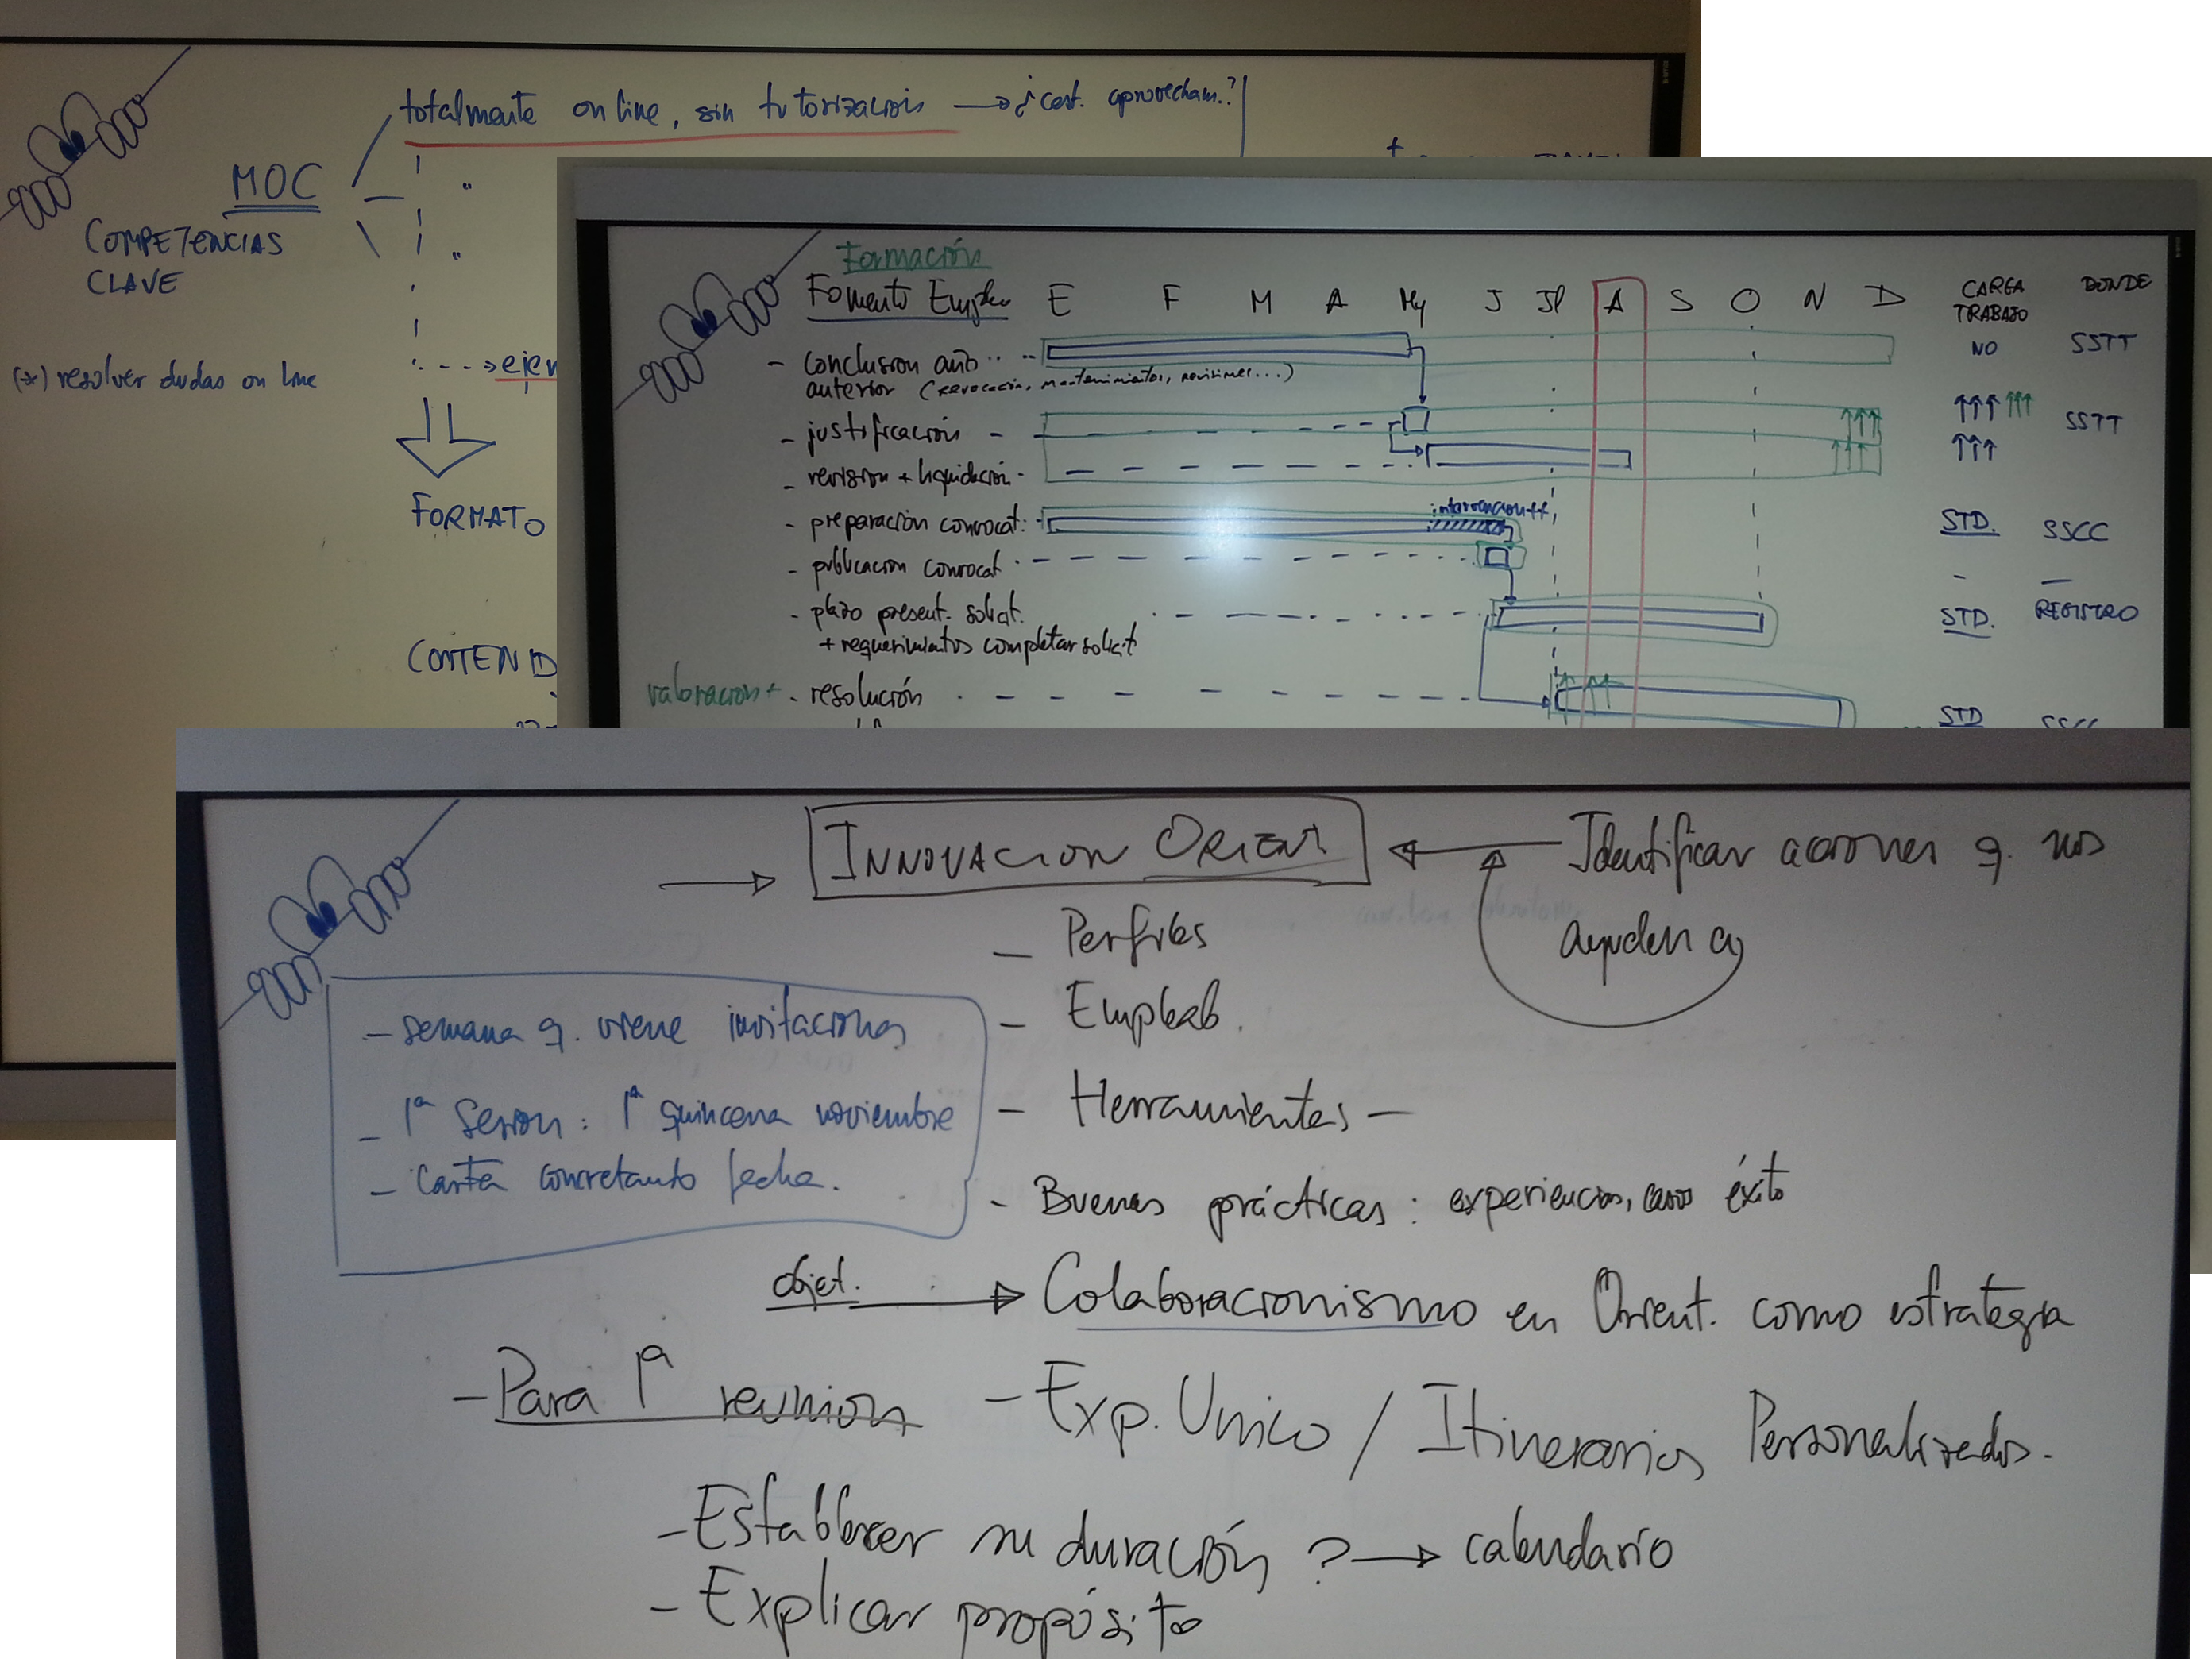 totalmente on line, sin tutorización → ¿cert. aprovecham.?
MOC
"
COMPETENCIAS
CLAVE
"
(*) resolver dudas on line
FORMATO
Formación
Fomento Empleo E F M A My J Jl A S O N D CARGA TRABAJO DONDE
- conclusion año anterior (revocación, mantenimientos, revisiones...) NO SSTT
- justificación ↑↑↑ ↑↑↑ SSTT
- revision + liquidación ↑↑↑
intervencion
- preparación convocat. STD. SSCC
- publicacion convocat. - -
- plazo present. solicit. STD. REGISTRO
+ requerimientos completar solicit
valoracion + - resolución STD
→ INNOVACION ORIENT ← Identificar acciones q. nos
ayuden a
- Perfiles
- Empleab.
- Herramientas -
- Buenas prácticas: experiencias, casos éxito
- semana q. viene invitaciones
- 1ª Sesion: 1ª quincena noviembre
- Carta concretando fecha.
objet. → Colaboracionismo en Orient. como estrategia
- Para 1ª reunion - Exp. Unico / Itinerarios Personalizados.
- Establecer su duración ? → calendario
- Explicar propósito